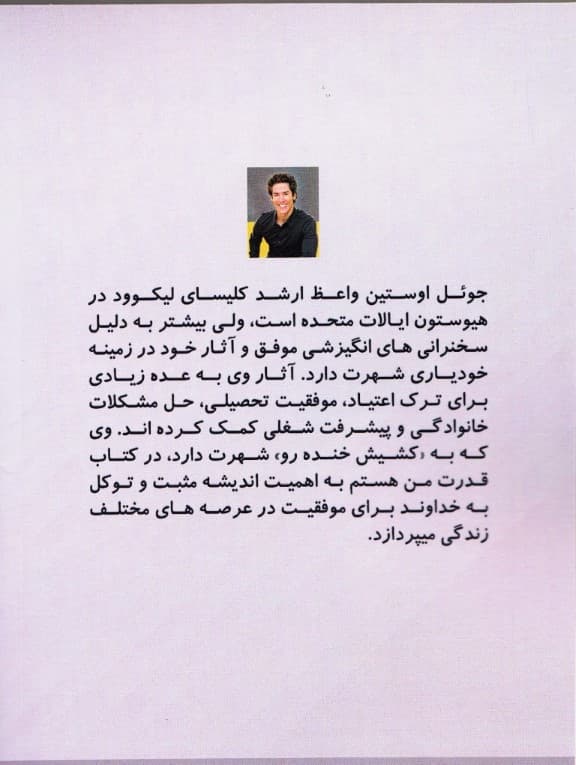 جوئل اوستین واعظ ارشد کلیسای لیکوود در
هیوستون ایالات متحده است، ولی بیشتر به دلیل
سخنرانی های انگیزشی موفق و آثار خود در زمینه
خودیاری شهرت دارد. آثار وی به عده زیادی
برای ترک اعتیاد، موفقیت تحصیلی، حل مشکلات
خانوادگی و پیشرفت شغلی کمک کرده اند. وی
که به «کشیش خنده رو» شهرت دارد، در کتاب
قدرت من هستم به اهمیت اندیشه مثبت و توکل
به خداوند برای موفقیت در عرصه های مختلف
زندگی میپردازد.